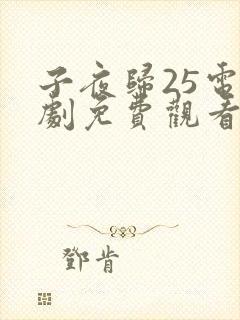 子夜歸25電
劇免費觀看
鄧肯